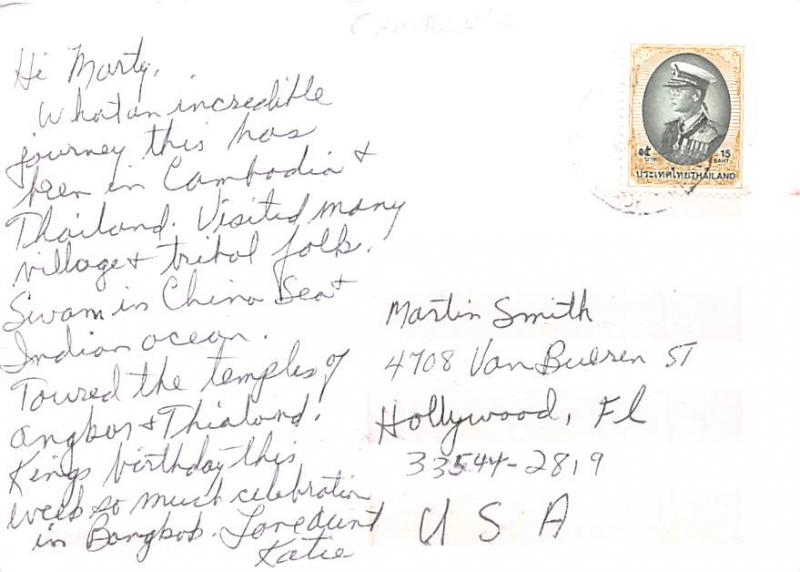 Hi Marty,
What an incredible
journey this has
been in Cambodia +
Thailand. Visited many
village + tribal folk.
Swam in China Sea +
Indian ocean.
Toured the temples of
angkor + Thialand.
Kings birthday this
week so much celebration
in Bangkok. Love aunt
Katie
๑๕ 15
บาท BAHT
ประเทศไทย THAILAND
Martin Smith
4708 Van Bueren ST
Hollywood, Fl
33544-2819
U S A